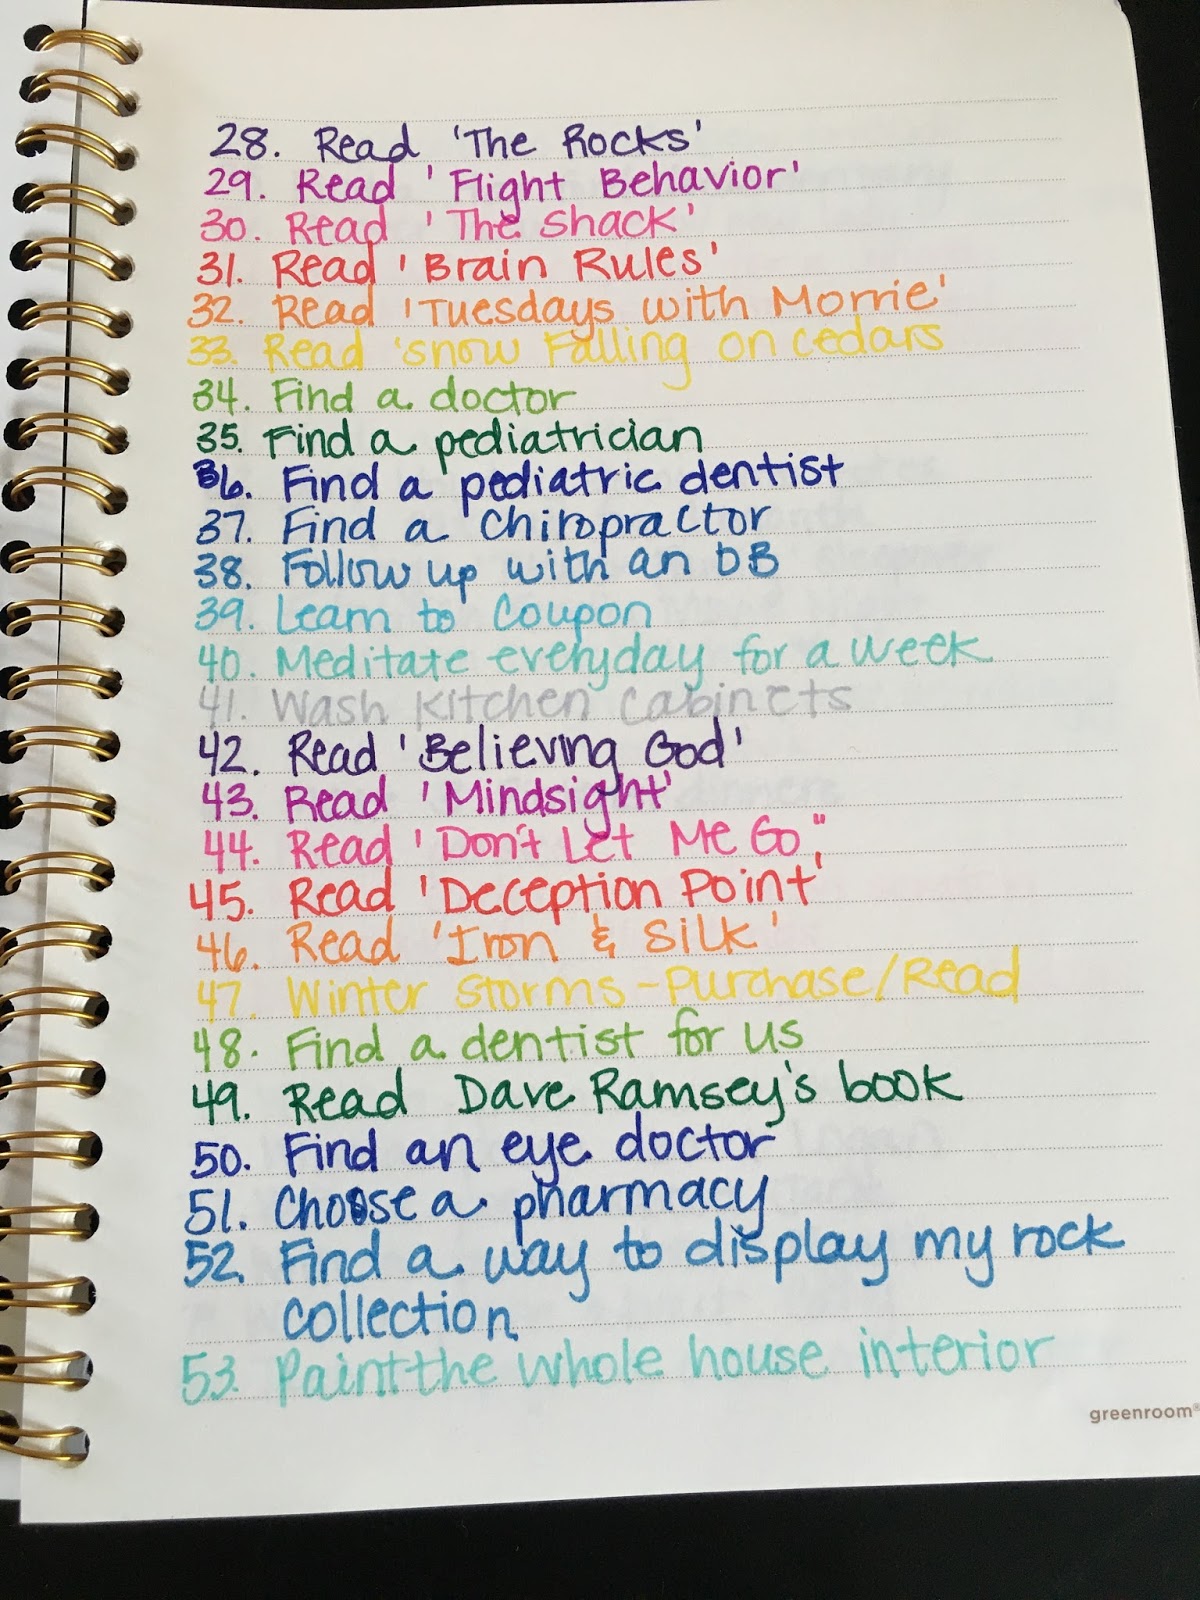 28. Read 'The Rocks'
29. Read 'Flight Behavior'
30. Read 'The Shack'
31. Read 'Brain Rules'
32. Read 'Tuesdays with Morrie'
33. Read 'snow Falling on cedars
34. Find a doctor
35. Find a pediatrician
36. Find a pediatric dentist
37. Find a Chiropractor
38. Follow up with an OB
39. Learn to Coupon
40. Meditate everyday for a week
41. Wash Kitchen Cabinets
42. Read 'Believing God'
43. Read 'Mindsight'
44. Read 'Don't Let Me Go"
45. Read 'Deception Point'
46. Read 'Iron & Silk'
47. Winter Storms-Purchase/Read
48. Find a dentist for us
49. Read Dave Ramsey's book
50. Find an eye doctor
51. Choose a pharmacy
52. Find a way to display my rock
collection
53. Paint the whole house interior
greenroom®